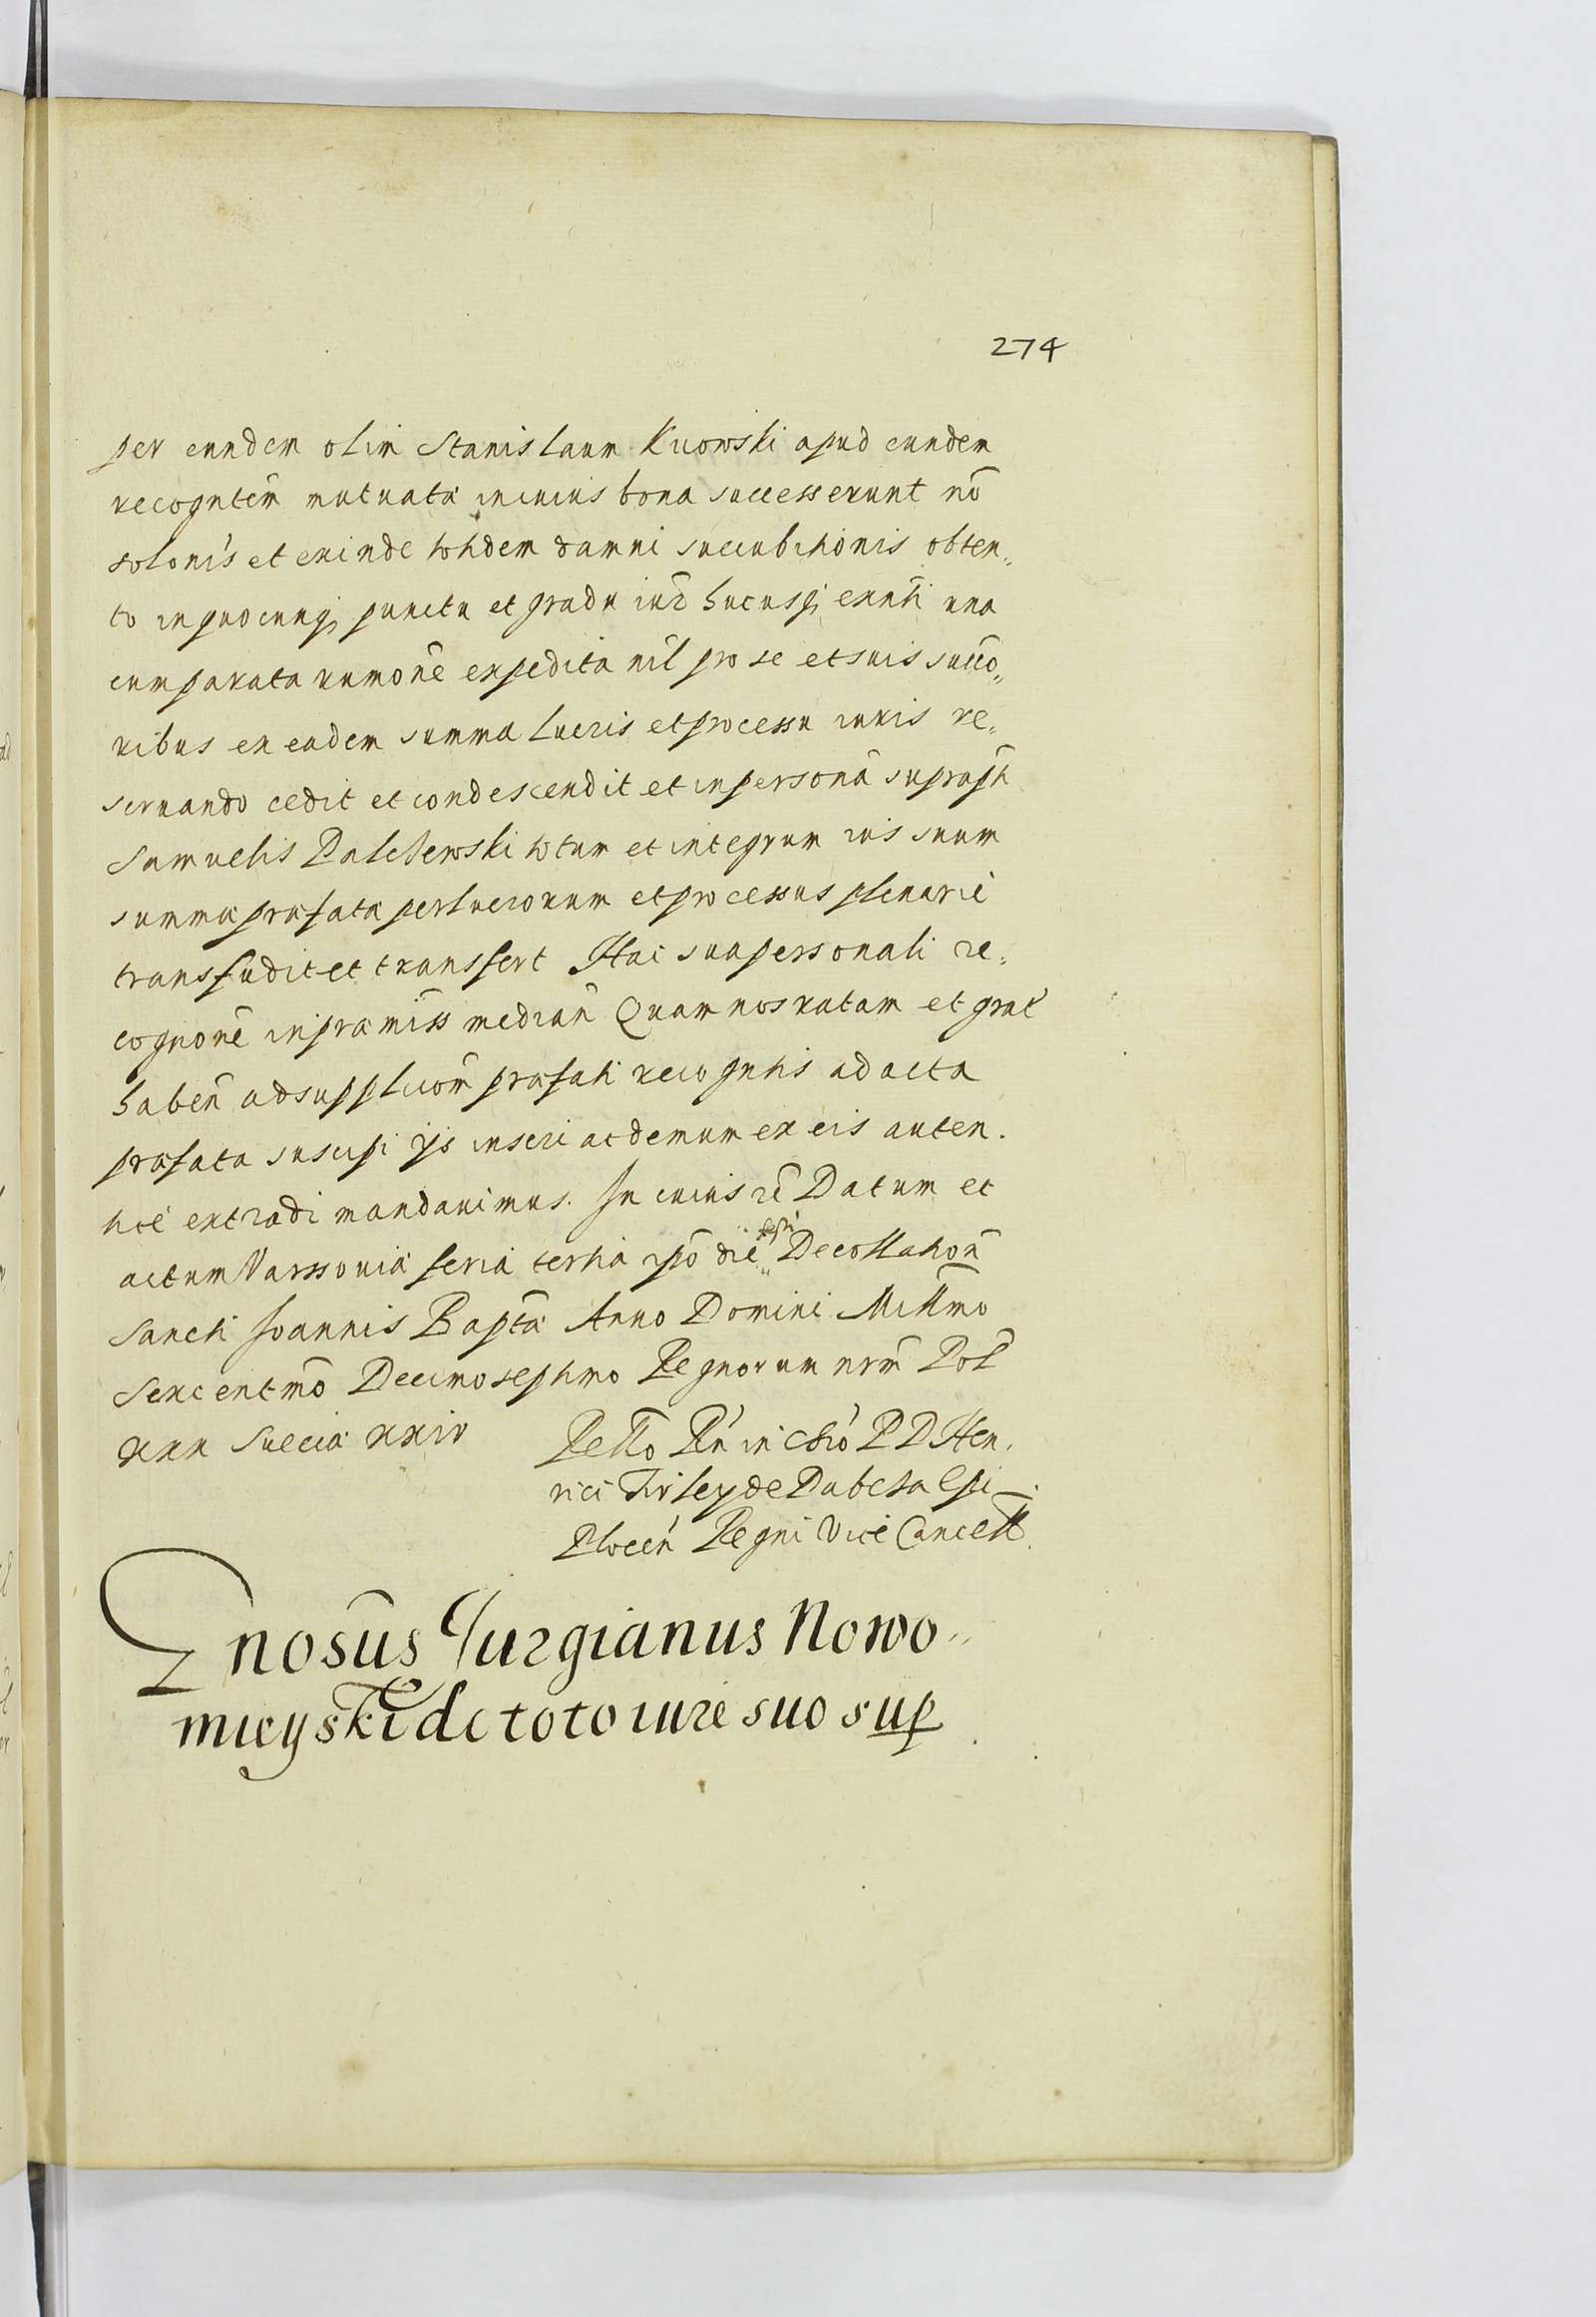 274
per eundem olim Stanislaum Kuowski apud eundem
recogntem mutuata in cuius bona successerunt nō
solonis et exinde totidem damni succubitionis obten„
to in quocunq; punctu et gradu iur̄ hucusq; exn̄ti una
cum parata numone expedita nil pro se et suis succo„
ribus ex eadem summa lucris et processu iuris re„
seruando cedit et condescendit et in persona suprap̄ti
Samuelis Palchewski totum et integrum ius suum
summa præfata perlucrorum et processus plenarie
transfudit et transfert Hac sua personali re„
cognone in præmiss median̄ Quam nos ratam et grat
haben̄ ad supplicom̄ præfati recogntis ad acta
præfata suscipi ijs inseri ac demum ex eis auten.
tice extradi mandauimus. In cuius rē Datum et
actum Varssouiæ feria tertia ipō die festi Decollation̄
Sancti Joannis Baptæ Anno Domini Millmo
Sexcentmō Decimo septimo Regnorum nr̄m Pol
xxx Sueciæ xxiv
Rello Rn in Chro P D Hen.
rici Firley de Dabcza Epi
Plocen Regni Vice Cancell.
Gnosus Jurgianus Nowo„
mieyski de toto iure suo sup